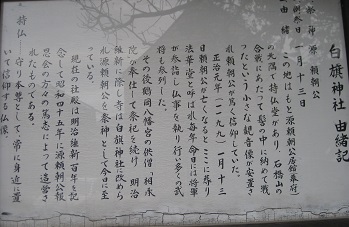 白旗神社 由緒記
祭神 源 頼朝公
例祭 一月十三日
由緒
この地はもと源頼朝公居館(幕府)
の北隅で持仏堂があり、石橋山の
合戦にあたって髻の中に納めて戦
ったという小さな観音像が安置さ
れ頼朝公が篤く信仰していた。
正治元年(一一九九)一月十三
日頼朝公が亡くなるとここに葬り
法華堂と呼ば れ毎年命日には将軍
が参詣し仏事を執り行い多くの武
将も参列した。
その後鶴岡八幡宮の供僧「相承
院」が奉仕して祭祀を続け 明治
維新に際し寺は白旗神社に改めら
れ源頼朝公を祭神として今日に至
っている。
現在の社殿は明治維新百年を記
念して昭和四十五年に源頼朝公報
恩会の方々の篤志によって造営さ
れたものである。
持仏——守り本尊として、常に身近に置
いて信仰する仏像。